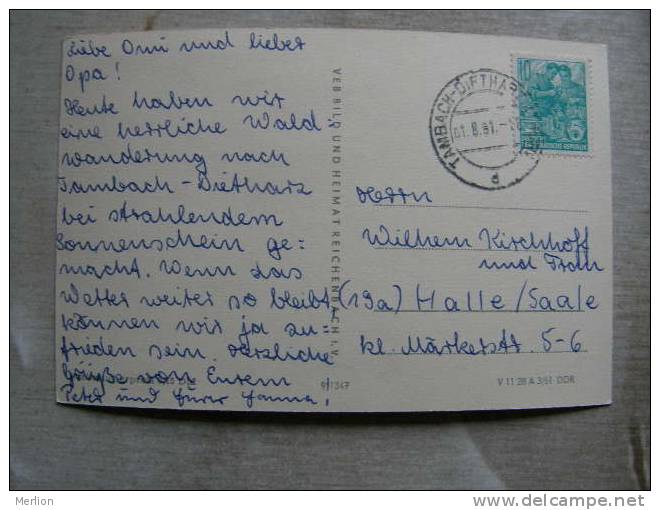 Liebe Omi und lieber
Opa!
Heute haben wir
eine herrliche Wald
wanderung nach
Tambach-Dietharz
bei strahlendem
Sonnenschein ge=
macht. Wenn das
Wetter weiter so bleibt
können wir ja zu=
frieden sein. Herzliche
Grüße von Eurem
Peter und Eurer
VEB BILD UND HEIMAT REICHENBACH I. V.
TAMBACH-DIETHARZ
01.8.61.
d
10
5
Herrn
Wilhelm Kirchhoff
und Frau
(19a) Halle/Saale
kl. Märkerstr. 5-6
9/1347
V 11 28 A 3/61 DDR
Merlion
http://www.delcampe.net